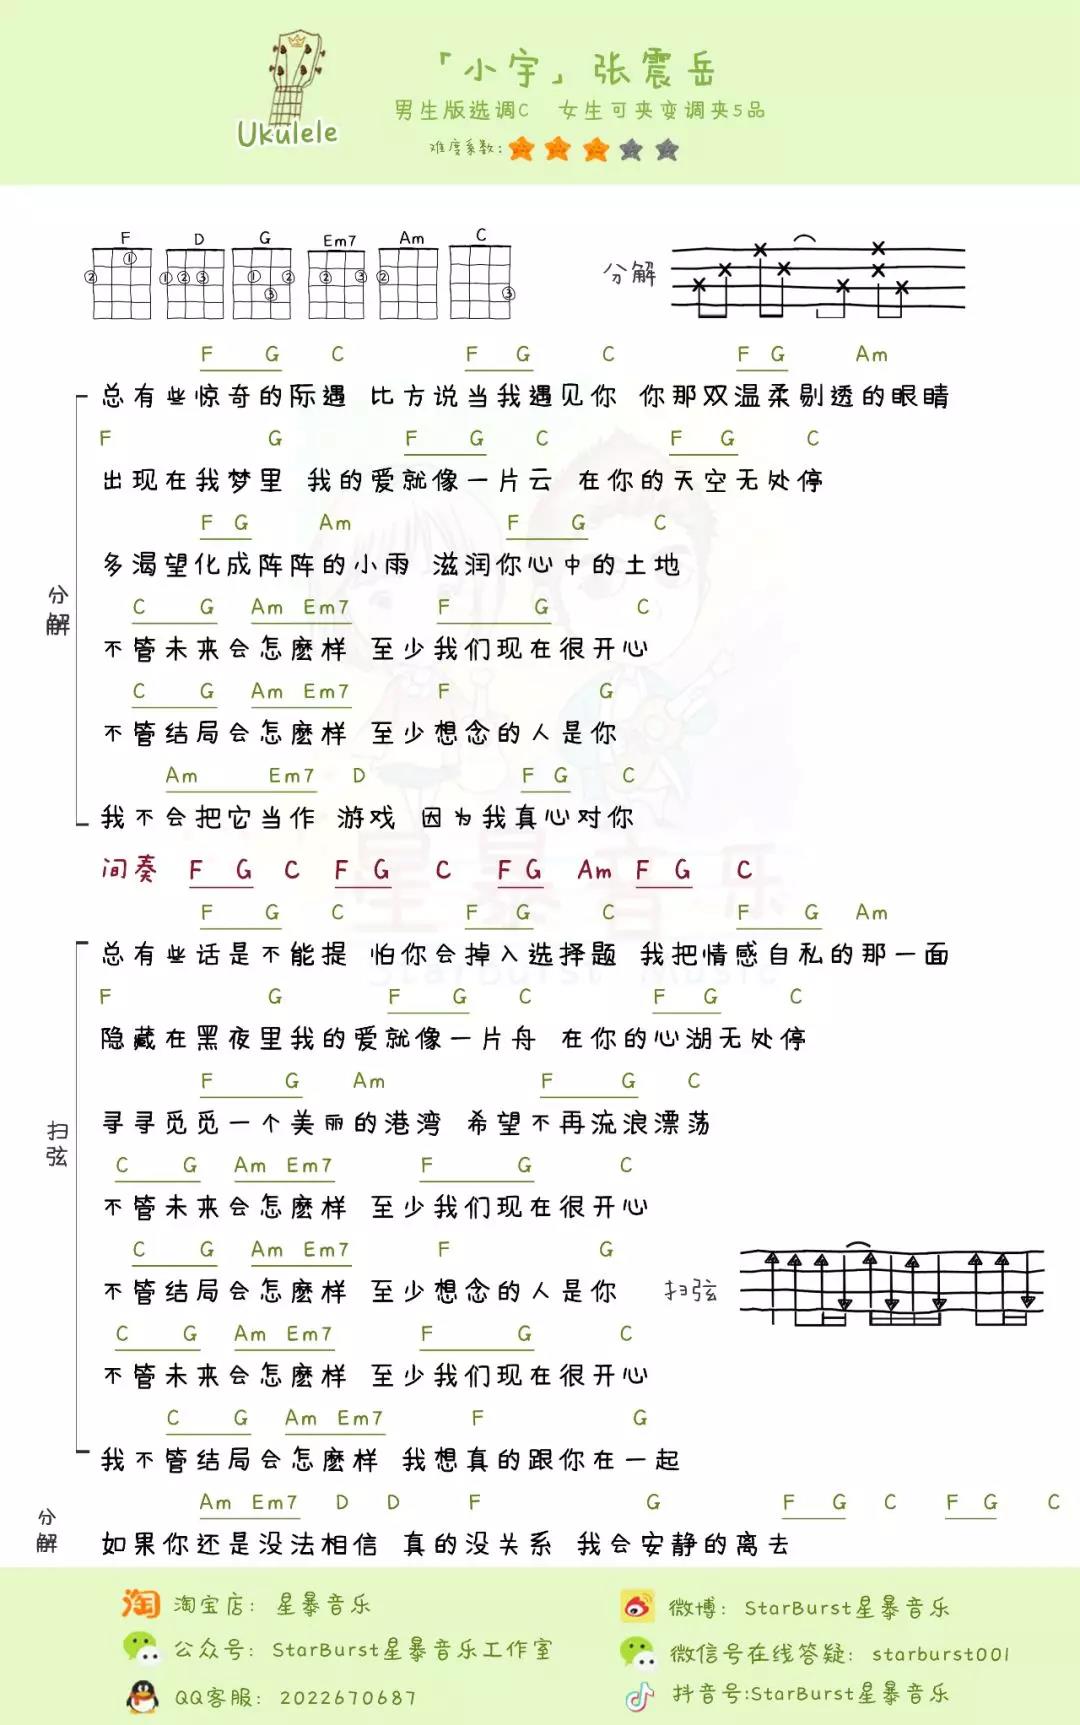 Ukulele
「小宇」张震岳
男生版选调C 女生可夹变调夹5品
难度系数:
F D G Em7 Am C
分解
F G C F G C F G Am
总有些惊奇的际遇 比方说当我遇见你 你那双温柔剔透的眼睛
F G F G C F G C
出现在我梦里 我的爱就像一片云 在你的天空无处停
F G Am F G C
多渴望化成阵阵的小雨 滋润你心中的土地
分解
C G Am Em7 F G C
不管未来会怎麽样 至少我们现在很开心
C G Am Em7 F G
不管结局会怎麽样 至少想念的人是你
Am Em7 D F G C
我不会把它当作 游戏 因为我真心对你
间奏 F G C F G C F G Am F G C
星暴音乐
StarBurst Music
F G C F G C F G Am
总有些话是不能提 怕你会掉入选择题 我把情感自私的那一面
F G F G C F G C
隐藏在黑夜里我的爱就像一片舟 在你的心湖无处停
F G Am F G C
寻寻觅觅一个美丽的港湾 希望不再流浪漂荡
扫弦
C G Am Em7 F G C
不管未来会怎麽样 至少我们现在很开心
C G Am Em7 F G
不管结局会怎麽样 至少想念的人是你
扫弦
C G Am Em7 F G C
不管未来会怎麽样 至少我们现在很开心
C G Am Em7 F G
我不管结局会怎麽样 我想真的跟你在一起
Am Em7 D D F G F G C F G C
分解
如果你还是没法相信 真的没关系 我会安静的离去
淘 淘宝店: 星暴音乐
微博: StarBurst星暴音乐
公众号: StarBurst星暴音乐工作室
微信号在线答疑: starburst001
QQ客服: 2022670687
抖音号:StarBurst星暴音乐